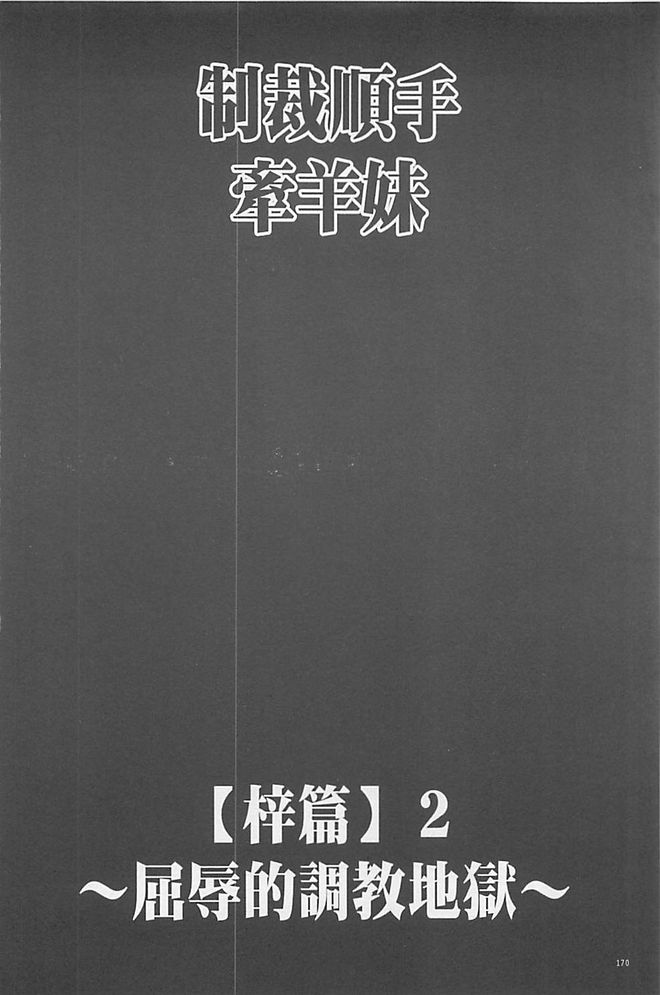 制裁順手
牽羊妹
【梓篇】2
～屈辱的調教地獄～
170